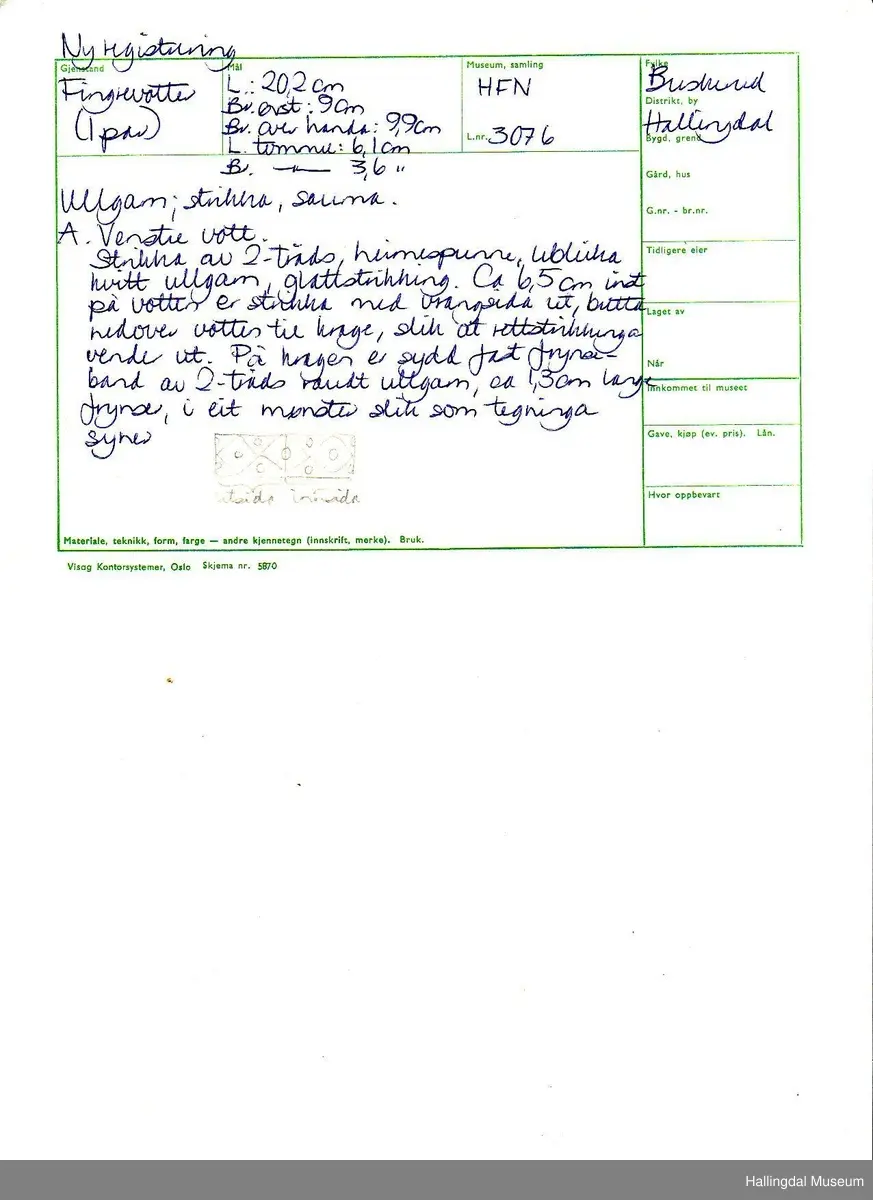 Ny registrering
Gjenstand
Fingrevotter
(1 par)
Mål
L.: 20,2 cm
Br. øvst: 9 cm
Br. over handa: 9,9 cm
L. tomme: 6,1 cm
B. —"— 3,6 "
Museum, samling
HFN
L.nr. 3076
Fylke
Buskerud
Distrikt, by
Hallingdal
Bygd, grend
Gård, hus
G.nr. - br.nr.
Tidligere eier
Laget av
Når
Innkommet til museet
Gave, kjøp (ev. pris). Lån.
Hvor oppbevart
Ullgarn; strikka, sauma.
A. Venstre vott.
Strikka av 2-tråds, heimespunne, ubleika
kvitt ullgarn, glattstrikking. Ca 6,5 cm inst
på votten er strikka med vrangsida ut, bretta
nedover votten til krage, slik at rettstrikkinga
vender ut. På kragen er sydd fast frynse-
band av 2-tråds raudt ullgarn, ca 1,3 cm lange
frynser, i eit mønster slik som tegninga
syner
utsida innsida
Materiale, teknikk, form, farge — andre kjennetegn (innskrift, merke). Bruk.
Visag Kontorsystemer, Oslo Skjema nr. 5870
Hallingdal Museum